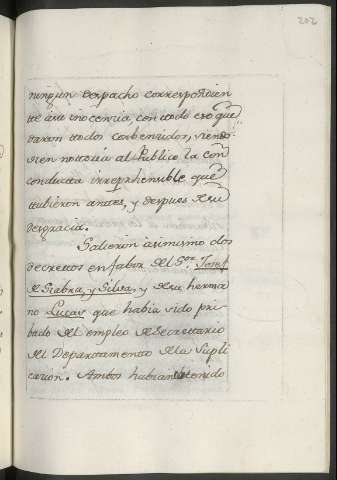 202
ningun despacho correspondien
tte a su inocencia, con ttodo eso que
daron ttodos corbencidos, siendo
vien nottoria al Publico la con
conductta irreprhensible que
ttubieron antes, y despues de su
desgracia.
Salieron asimismo dos
decrettos en fabor del S.or Joseph
de Seabra, y Silva, y de su herma
no Lucas que habia sido pri
bado del empleo de Secrettario
del Departamentto de la Supli
cacion. Ambos habian tenido